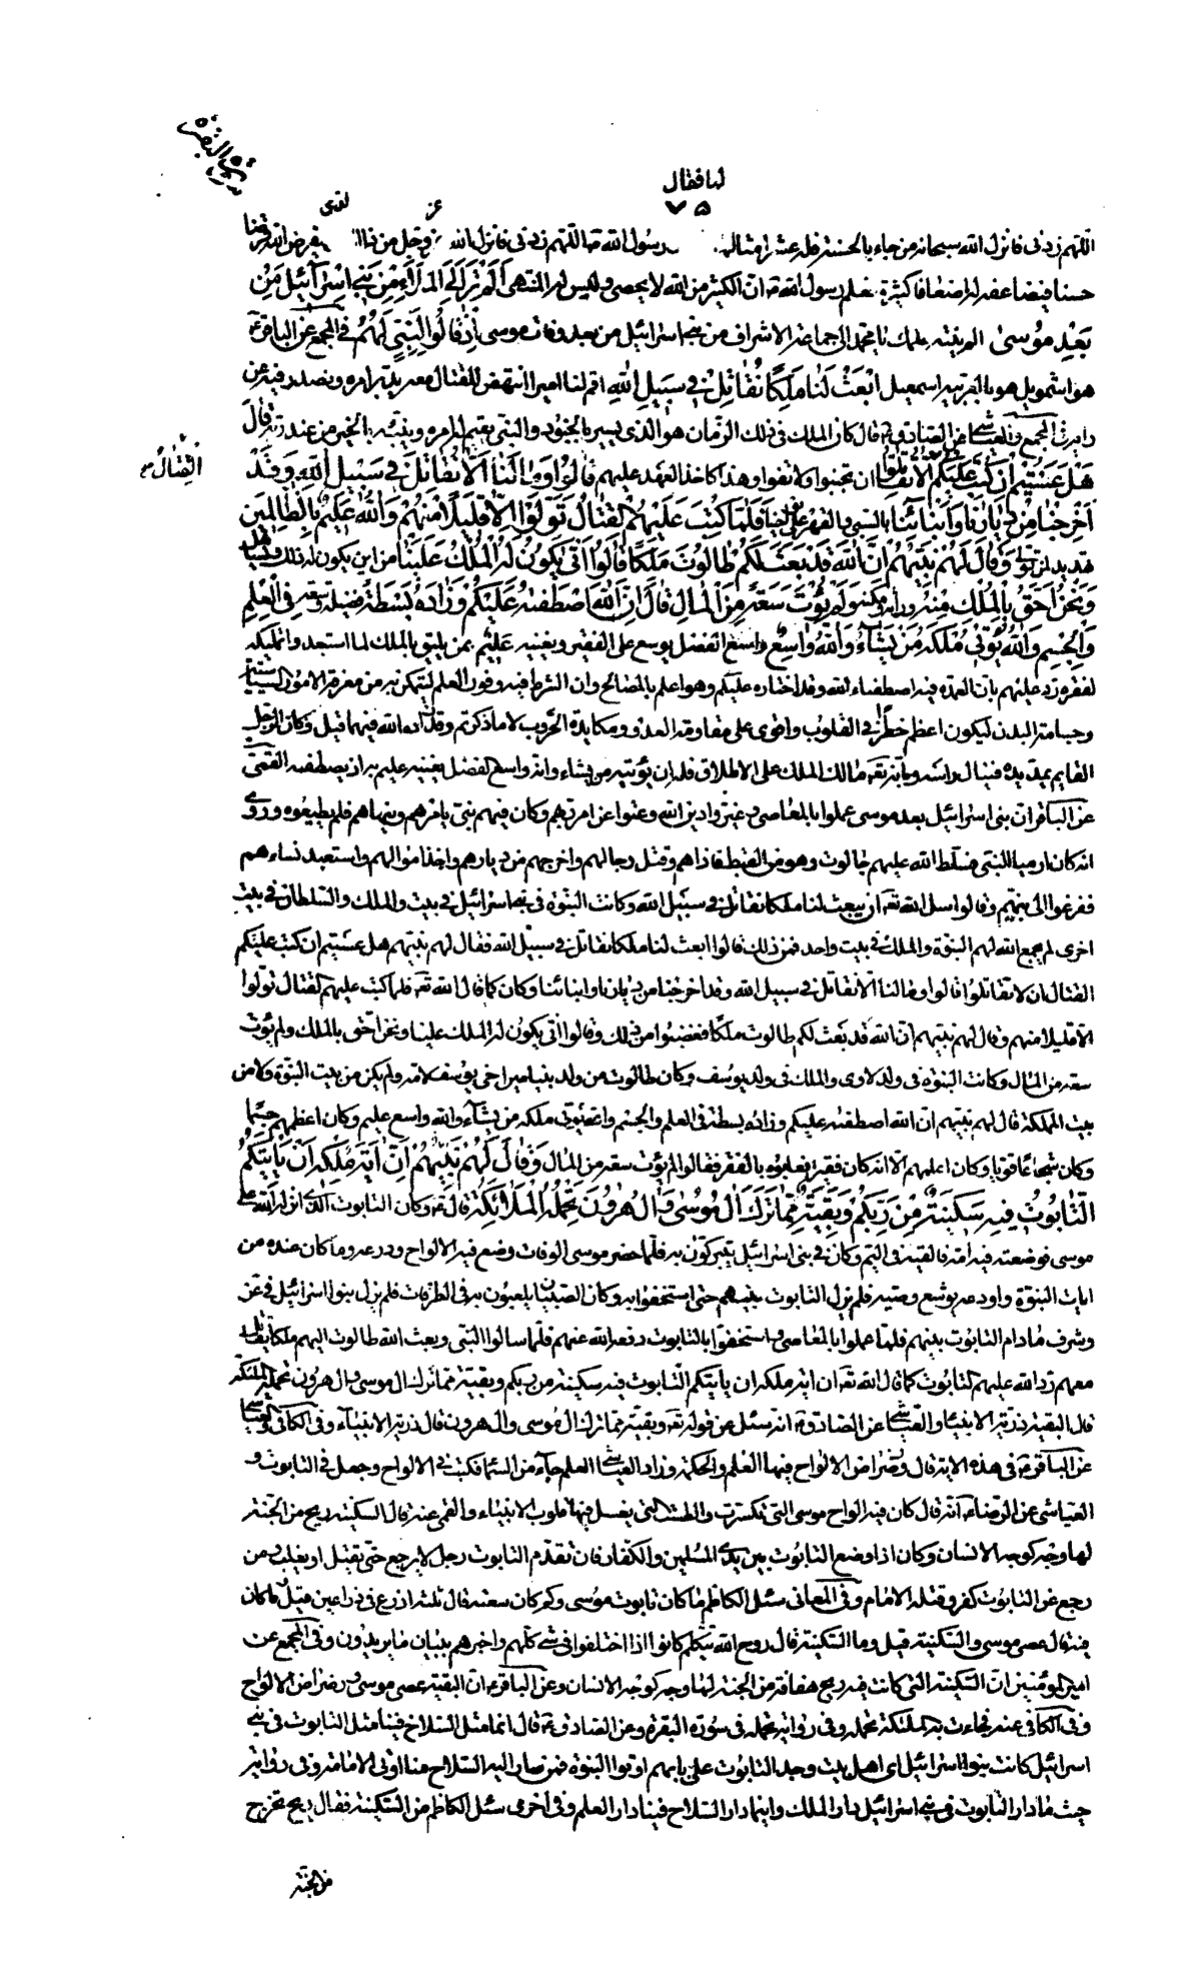 سورة البقرة
لنا فقال
٧٥
عز
لذی
اللهم زدنی فانزل الله سبحانه من جاء بالحسنة فله عشر امثالها رسول الله ص اللهم زدنی فانزل الله عز وجل من ذا الذی یقرض الله قرضا
حسنا فیضاعفه له اضعافا کثیرة فعلم رسول الله ص ان الکثیر من الله لا یحصی ولیس له منتهی أَلَمْ تَرَ إِلَى الْمَلَإِ مِنْ بَنِي إِسْرَائِيلَ مِنْ
بَعْدِ مُوسَىٰ الم ینته علمك یا محمد الی جماعة الاشراف من بنی اسرائیل من بعد وفات موسی إِذْ قَالُوا لِنَبِيٍّ لَهُمُ فی المجمع عن الباقر ع
هو اشمویل هو بالعربیة اسمعیل ابْعَثْ لَنَا مَلِكًا نُقَاتِلْ فِي سَبِيلِ اللَّهِ اقم لنا امیرا انتهض للقتال معه یدبر امره ونصدر فیه عن
رایه وفی المجمع والعیاشی عن الصادق ع قال کان الملك فی ذلك الزمان هو الذی یسیر بالجنود والنبی یقیم له امره وینبئه بالخیر من عند ربه قَالَ
هَلْ عَسَيْتُمْ إِنْ كُتِبَ عَلَيْكُمُ أَلَّا تُقَاتِلُوا ان تجبنوا ولا تفوا وهذا کاخذ العهد علیهم قَالُوا وَمَا لَنَا أَلَّا نُقَاتِلَ فِي سَبِيلِ اللَّهِ وَقَدْ
القتال ص
أُخْرِجْنَا مِنْ دِيَارِنَا وَأَبْنَائِنَا بالسبی والقهر علی فَلَمَّا كُتِبَ عَلَيْهِمُ الْقِتَالُ تَوَلَّوْا إِلَّا قَلِيلًا مِنْهُمْ وَاللَّهُ عَلِيمٌ بِالظَّالِمِينَ
تهدید لمن تولی وَقَالَ لَهُمْ نَبِيُّهُمْ إِنَّ اللَّهَ قَدْ بَعَثَ لَكُمْ طَالُوتَ مَلِكًا قَالُوا أَنَّىٰ يَكُونُ لَهُ الْمُلْكُ عَلَيْنَا من این یکون له ذلك
وَنَحْنُ أَحَقُّ بِالْمُلْكِ مِنْهُ وراثة ومکنة وَلَمْ يُؤْتَ سَعَةً مِنَ الْمَالِ قَالَ إِنَّ اللَّهَ اصْطَفَاهُ عَلَيْكُمْ وَزَادَهُ بَسْطَةً فضیلة وسعة فِي الْعِلْمِ
وَالْجِسْمِ وَاللَّهُ يُؤْتِي مُلْكَهُ مَنْ يَشَاءُ وَاللَّهُ وَاسِعٌ واسع الفضل یوسع علی الفقیر ویغنیه عَلِيمٌ بمن یلیق بالملك لما استبعدوا تملکه
لفقره رد علیهم بان العمدة فیه اصطفاء الله وقد اختاره علیکم وهو اعلم بالمصالح وان الشرط فیه وفور العلم لیتمکن به من معرفة الامور السیاسیة
وجسامة البدن لیکون اعظم خطرا فی القلوب واقوی علی مقاومة العدو ومکایدة الحروب لا ما ذکرتم وقد زاده الله فیهما قیل وکان الرجل
القایم یمد یده فینال راسه وبانه تعه مالك الملك علی الاطلاق فله ان یؤتیه من یشاء وانه واسع الفضل یغنیه علیم به اذ یصطفیه القمی
عن الباقر ان بنی اسرائیل بعد موسی عملوا بالمعاصی وغیروا دین الله وعتوا عن امر ربهم وکان فیهم نبی یامرهم وینهاهم فلم یطیعوه وروی
انه کان ارمیا النبی فسلط الله علیهم جالوت وهو من القبط فاذلهم وقتل رجالهم واخرجهم من دیارهم واخذ اموالهم واستعبد نساءهم
ففزعوا الی نبیهم وقالوا سل الله تعه ان یبعث لنا ملکا نقاتل فی سبیل الله وکانت النبوة فی بنی اسرائیل فی بیت والملك والسلطان فی بیت
اخری لم یجمع الله لهم النبوة والملك فی بیت واحد فمن ذلك قالوا ابعث لنا ملکا نقاتل فی سبیل الله فقال لهم نبیهم هل عسیتم ان کتب علیکم
القتال ان لا تقاتلوا قالوا وما لنا الا نقاتل فی سبیل الله وقد اخرجنا من دیارنا وابنائنا وکان کما قال الله تعه فلما کتب علیهم القتال تولوا
الا قلیلا منهم وقال لهم نبیهم ان الله قد بعث لکم طالوت ملکا فغضبوا من ذلك وقالوا انی یکون له الملك علینا ونحن احق بالملك ولم یؤت
سعة من المال وکانت النبوة فی ولد لاوی والملك فی ولد یوسف وکان طالوت من ولد بنیامین اخی یوسف لامه ولم یکن من بیت النبوة ولا من
بیت المملکة قال لهم نبیهم ان الله اصطفیه علیکم وزاده بسطة فی العلم والجسم والله یؤتی ملکه من یشآء والله واسع علیم وکان اعظمهم جسما
وکان شجاعا قویا وکان اعلمهم الا انه کان فقیرا فعابوه بالفقر فقالوا لم یؤت سعة من المال وَقَالَ لَهُمْ نَبِيُّهُمْ إِنَّ آيَةَ مُلْكِهِ أَنْ يَأْتِيَكُمُ
التَّابُوتُ فِيهِ سَكِينَةٌ مِنْ رَبِّكُمْ وَبَقِيَّةٌ مِمَّا تَرَكَ آلُ مُوسَىٰ وَآلُ هَارُونَ تَحْمِلُهُ الْمَلَائِكَةُ قال ع وکان التابوت الذی انزله الله علی
موسی فوضعته فیه امه فالقیته فی الیم وکان فی بنی اسرائیل یتبرکون به فلما حضر موسی الوفات وضع فیه الالواح ودرعه وما کان عنده من
ایات النبوة واودعه یوشع وصیه فلم یزل التابوت بینهم حتی استخفوا به وکان الصبیان یلعبون به فی الطرقات فلم یزل بنوا اسرائیل فی عز
وشرف مادام التابوت بینهم فلما عملوا بالمعاصی واستخفوا بالتابوت رفعه الله عنهم فلما سالوا النبی وبعث الله طالوت الیهم ملکا یقاتل
معهم رد الله علیهم التابوت کما قال الله تعه ان ایة ملکه ان یاتیکم التابوت فیه سکینة من ربکم وبقیة مما ترك ال موسی وال هرون تحمله الملئکة
قال البقیة ذریة الانبیاء والعیاشی عن الصادق ع انه سئل عن قوله تعه وبقیة مما ترك ال موسی وال هرون قال ذریة الانبیآء وفی الکافی والعیاشی
عن الباقر ع فی هذه الایة قال رضراض الالواح فیها العلم والحکمة وزاد العیاشی العلم جآء من السماء فکتب فی الالواح وجعل فی التابوت و
العیاشی عن الرضا ع انه قال کان فیه الواح موسی التی تکسرت والطشت التی یغسل فیها قلوب الانبیاء والقمی عنه قال السکینة ریح من الجنة
لها وجه کوجه الانسان وکان اذا وضع التابوت بین یدی المسلمین والکفار فان تقدم التابوت رجل لا یرجع حتی یقتل او یغلب ومن
رجع عن التابوت کفر وقتله الامام وفی المعانی سئل الکاظم ما کان تابوت موسی وکم کان سعته قال ثلثة اذرع فی ذراعین قیل ما کان
فیه قال عصی موسی والسکینة قیل وما السکینة قال روح الله یتکلم کانوا اذا اختلفوا فی شیء کلمهم واخبرهم ببیان ما یریدون وفی المجمع عن
امیر المؤمنین ان السکینة التی کانت فیه ریح هفافة من الجنة لها وجه کوجه الانسان وعن الباقر ع ان البقیة عصی موسی ورضراض الالواح
وفی الکافی عنه فجاءت به الملئکة تحمله وفی روایة تحمله فی سورة البقرة وعن الصادق ع قال انما مثل السلاح فینا مثل التابوت فی بنی
اسرائیل کانت بنوا اسرائیل ای اهل بیت وجد التابوت علی بابهم اوتوا النبوة فمن صار الیه السلاح منا اوتی الامامة وفی روایة
حیث ما دار التابوت فی بنی اسرائیل دار الملك واینما دار السلاح فینا دار العلم وفی اخری سئل الکاظم عن السکینة فقال ریح تخرج
من الجنة